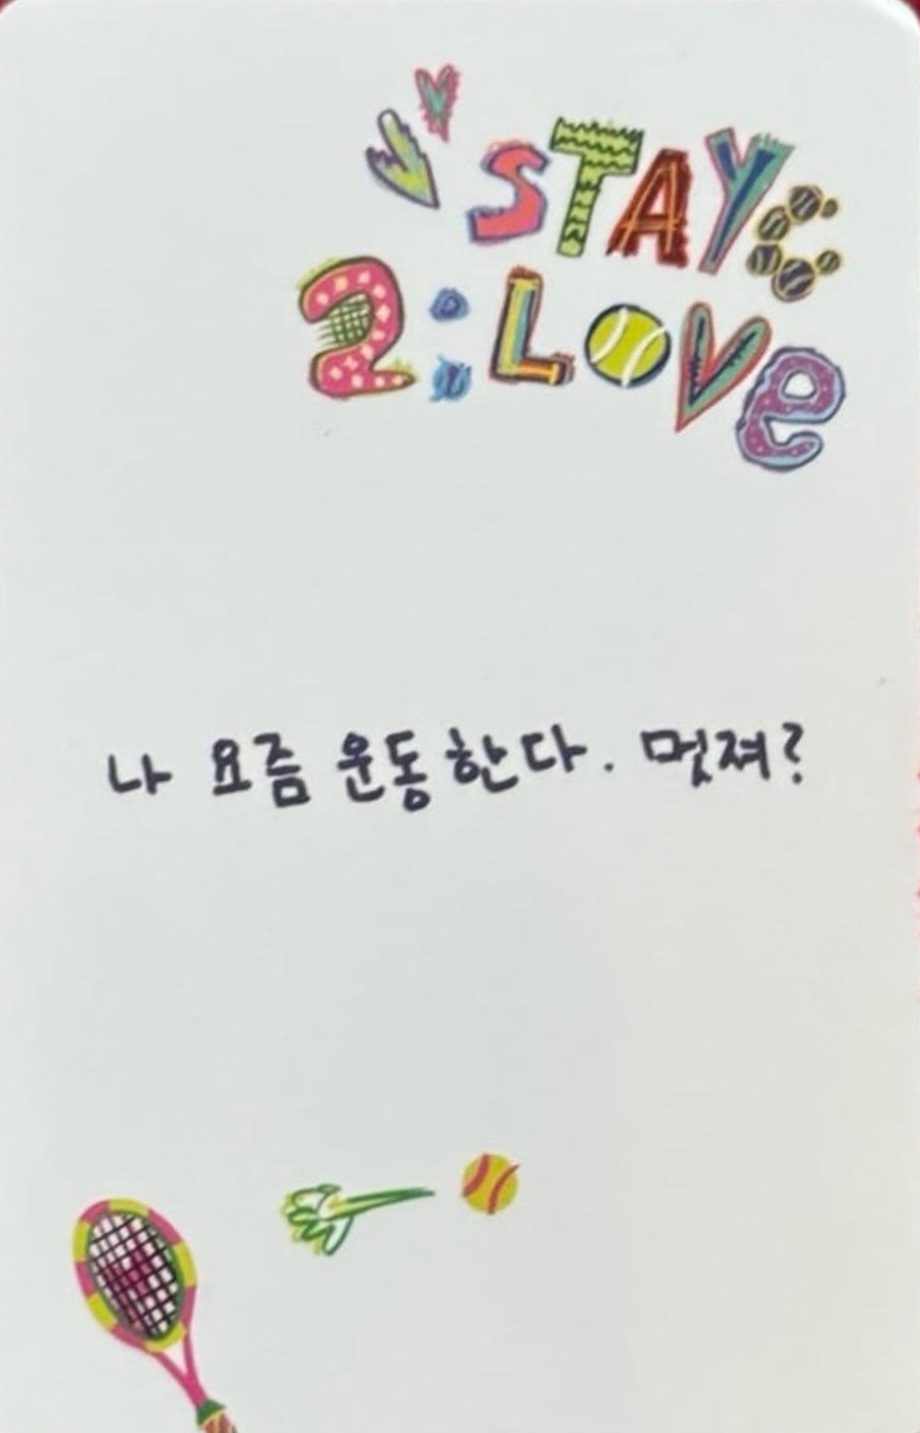 STAYC
2:LOVe
나 요즘 운동한다. 멋져?